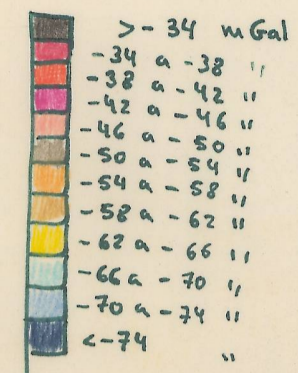 >-34 mGal
-34 a -38 "
-38 a -42 "
-42 a -46 "
-46 a -50 "
-50 a -54 "
-54 a -58 "
-58 a -62 "
-62 a -66 "
-66 a -70 "
-70 a -74 "
<-74 "